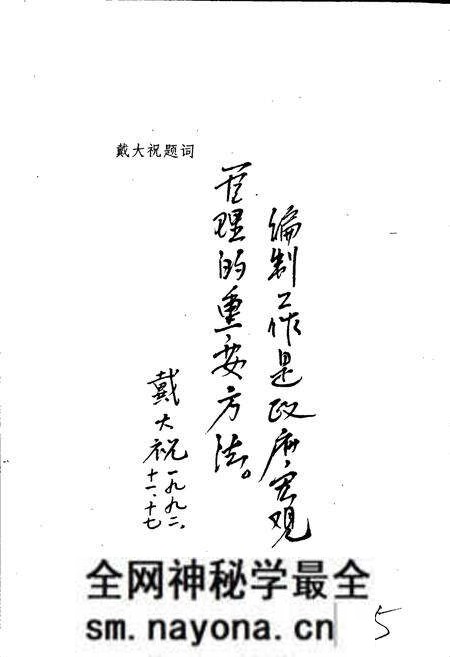 戴大祝题词
编制工作是政府宏观
管理的重要方法。
戴大祝
一九九二.
十一.十七
全网神秘学最全
sm.nayona.cn
5